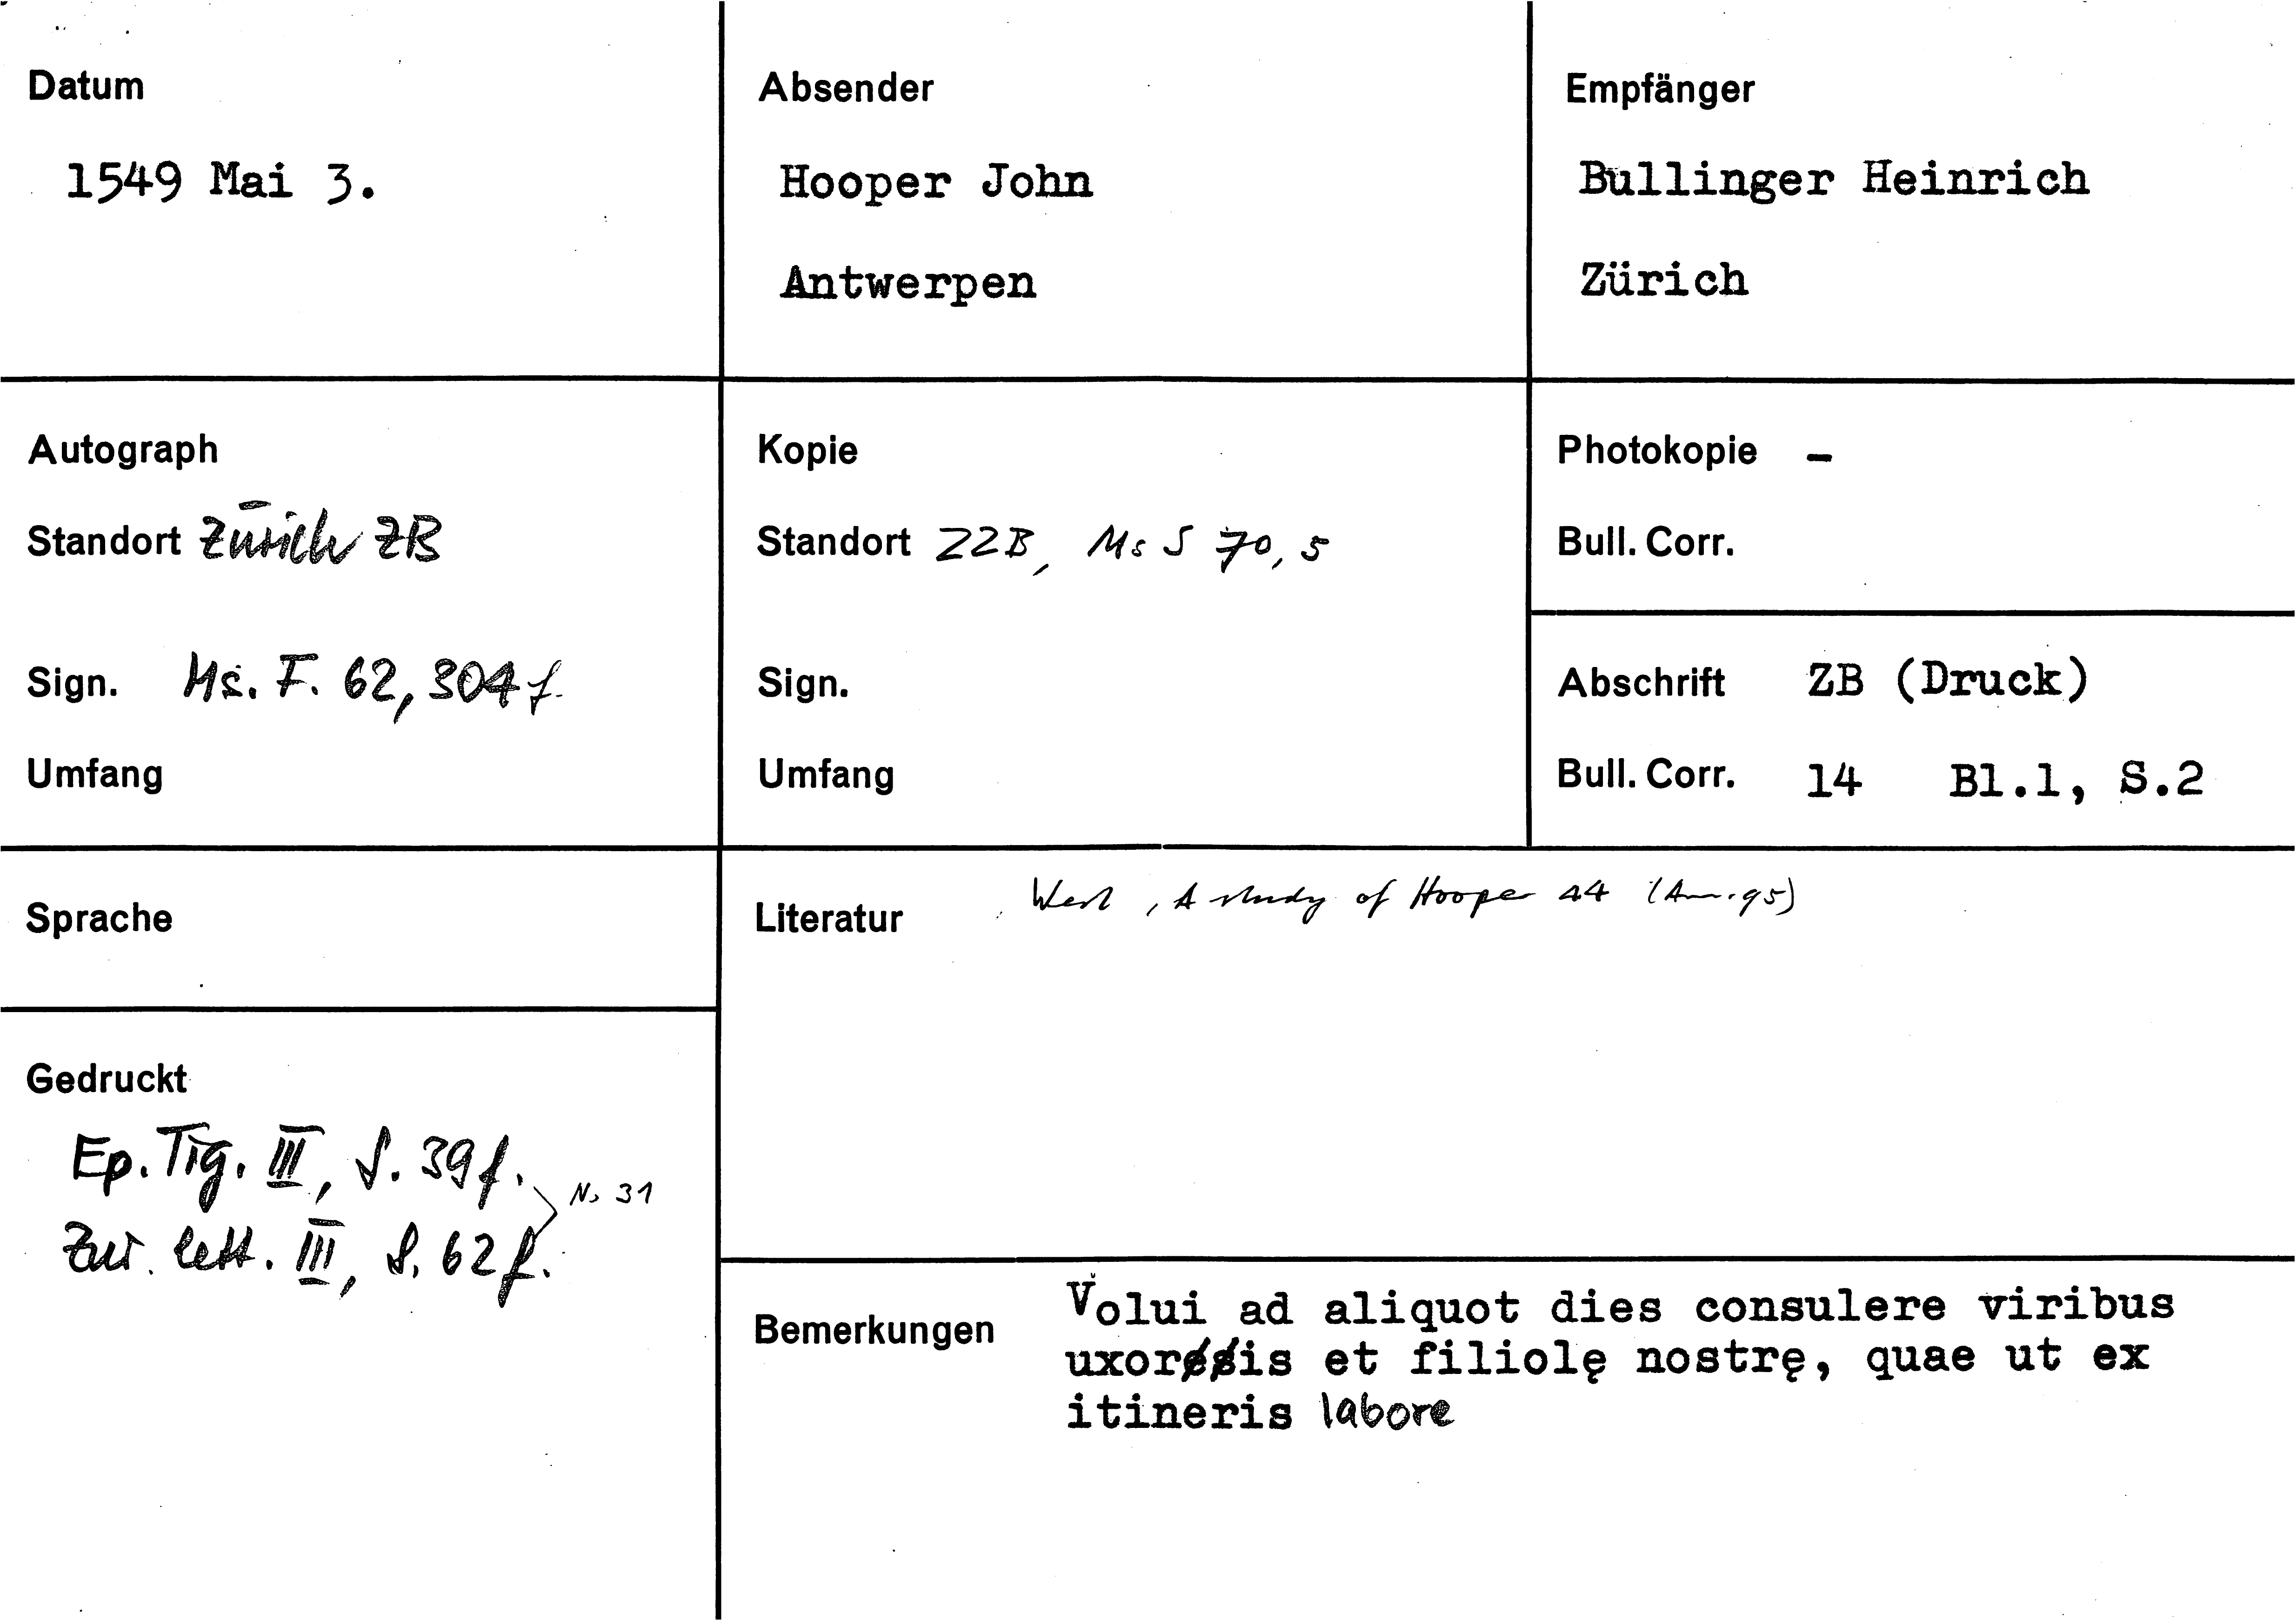 Datum
1549 Mai 3.
Absender
Hooper John
Antwerpen
Empfänger
Bullinger Heinrich
Zürich
Autograph
Standort Zürich ZB
Sign. Ms. F. 62, 304 f.
Umfang
Kopie
Standort ZZB, Ms S 70, 5
Sign.
Umfang
Photokopie –
Bull. Corr.
Abschrift ZB (Druck)
Bull. Corr. 14 Bl.1, S.2
Sprache
Literatur West, A study of Hooper 44 (Anm. 95)
Gedruckt
Ep. Tig. III, S. 39 f.
Zur. Lett. III, S. 62 f.
No 31
Bemerkungen
Volui ad aliquot dies consulere viribus
uxoris et filiolę nostrę, quae ut ex
itineris labore